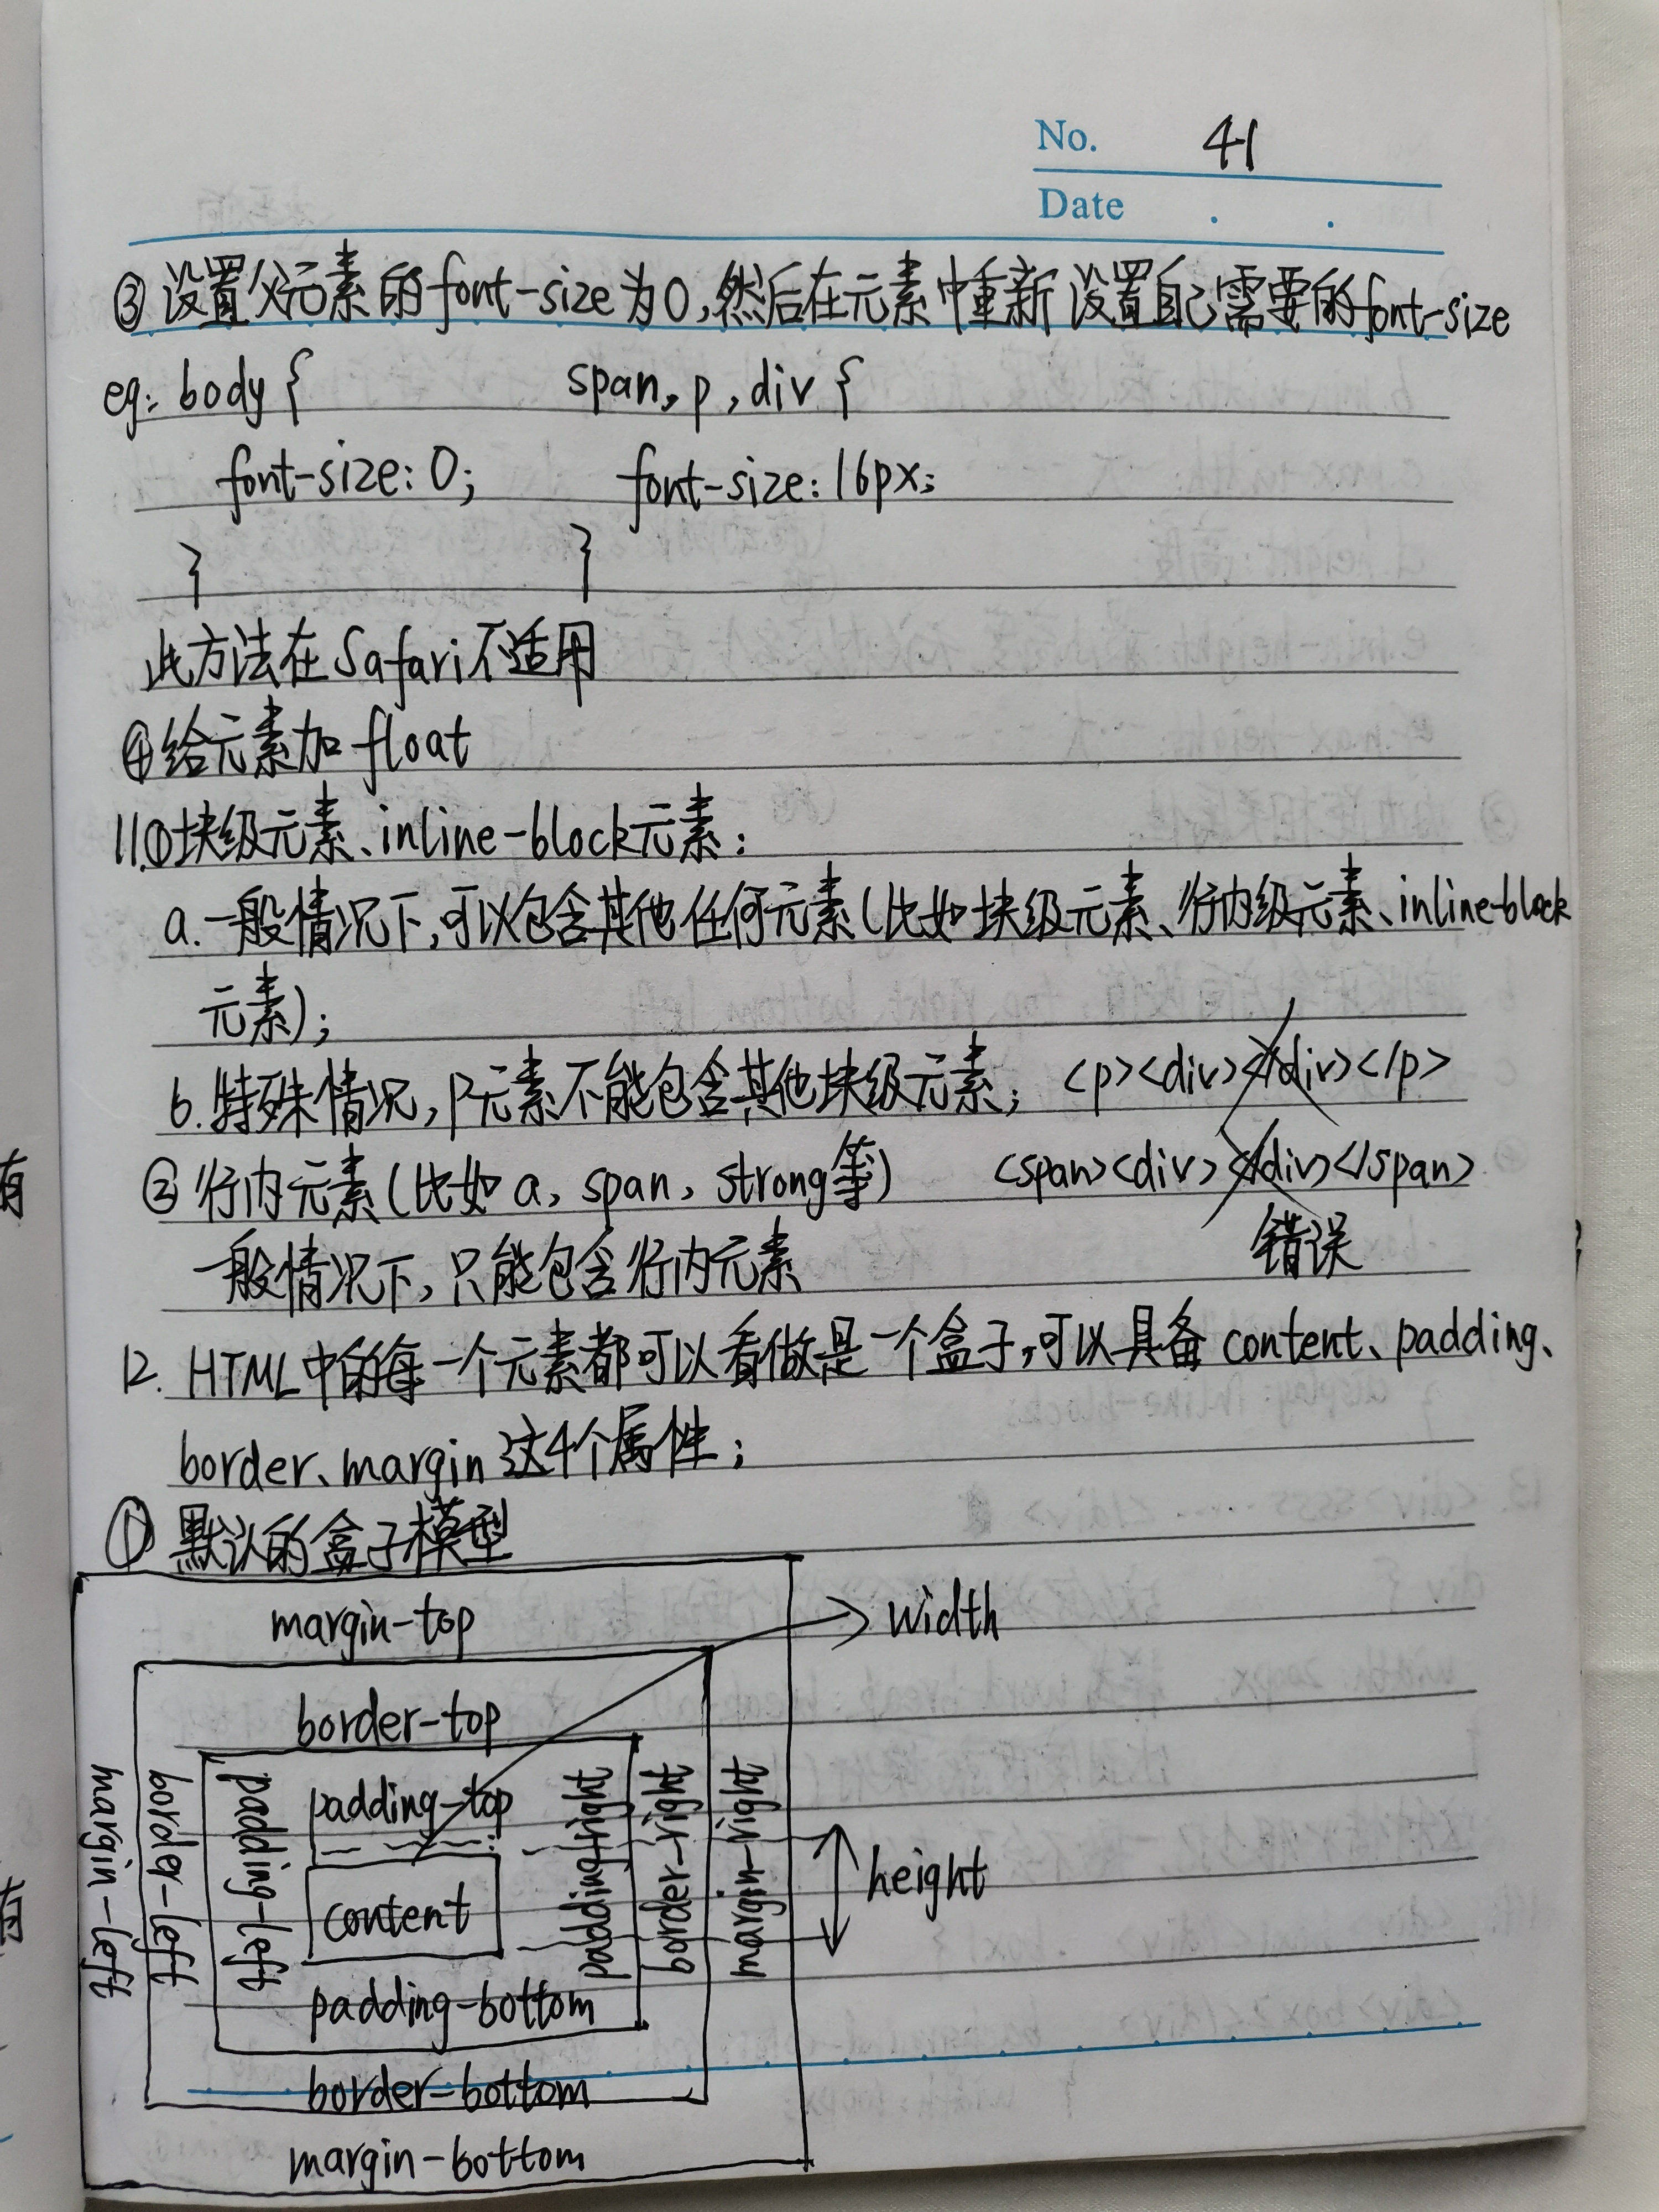 No. 41
Date . .
③设置父元素的font-size为0,然后在元素中重新设置自己需要的font-size
eg: body { span, p, div {
font-size: 0; font-size: 16px;
} }
此方法在Safari不适用
④给元素加float
11.①块级元素、inline-block元素:
a.一般情况下,可以包含其他任何元素(比如块级元素、行内级元素、inline-block
元素);
b.特殊情况,p元素不能包含其他块级元素; <p><div></div></p>
②行内元素(比如a, span, strong等) <span><div></div></span>
错误
一般情况下,只能包含行内元素
12. HTML中的每一个元素都可以看做是一个盒子,可以具备content、padding、
border、margin这4个属性;
①默认的盒子模型
margin-top
width
border-top
padding-top
margin-left
border-left
padding-left
content
padding-right
border-right
margin-right
height
padding-bottom
border-bottom
margin-bottom